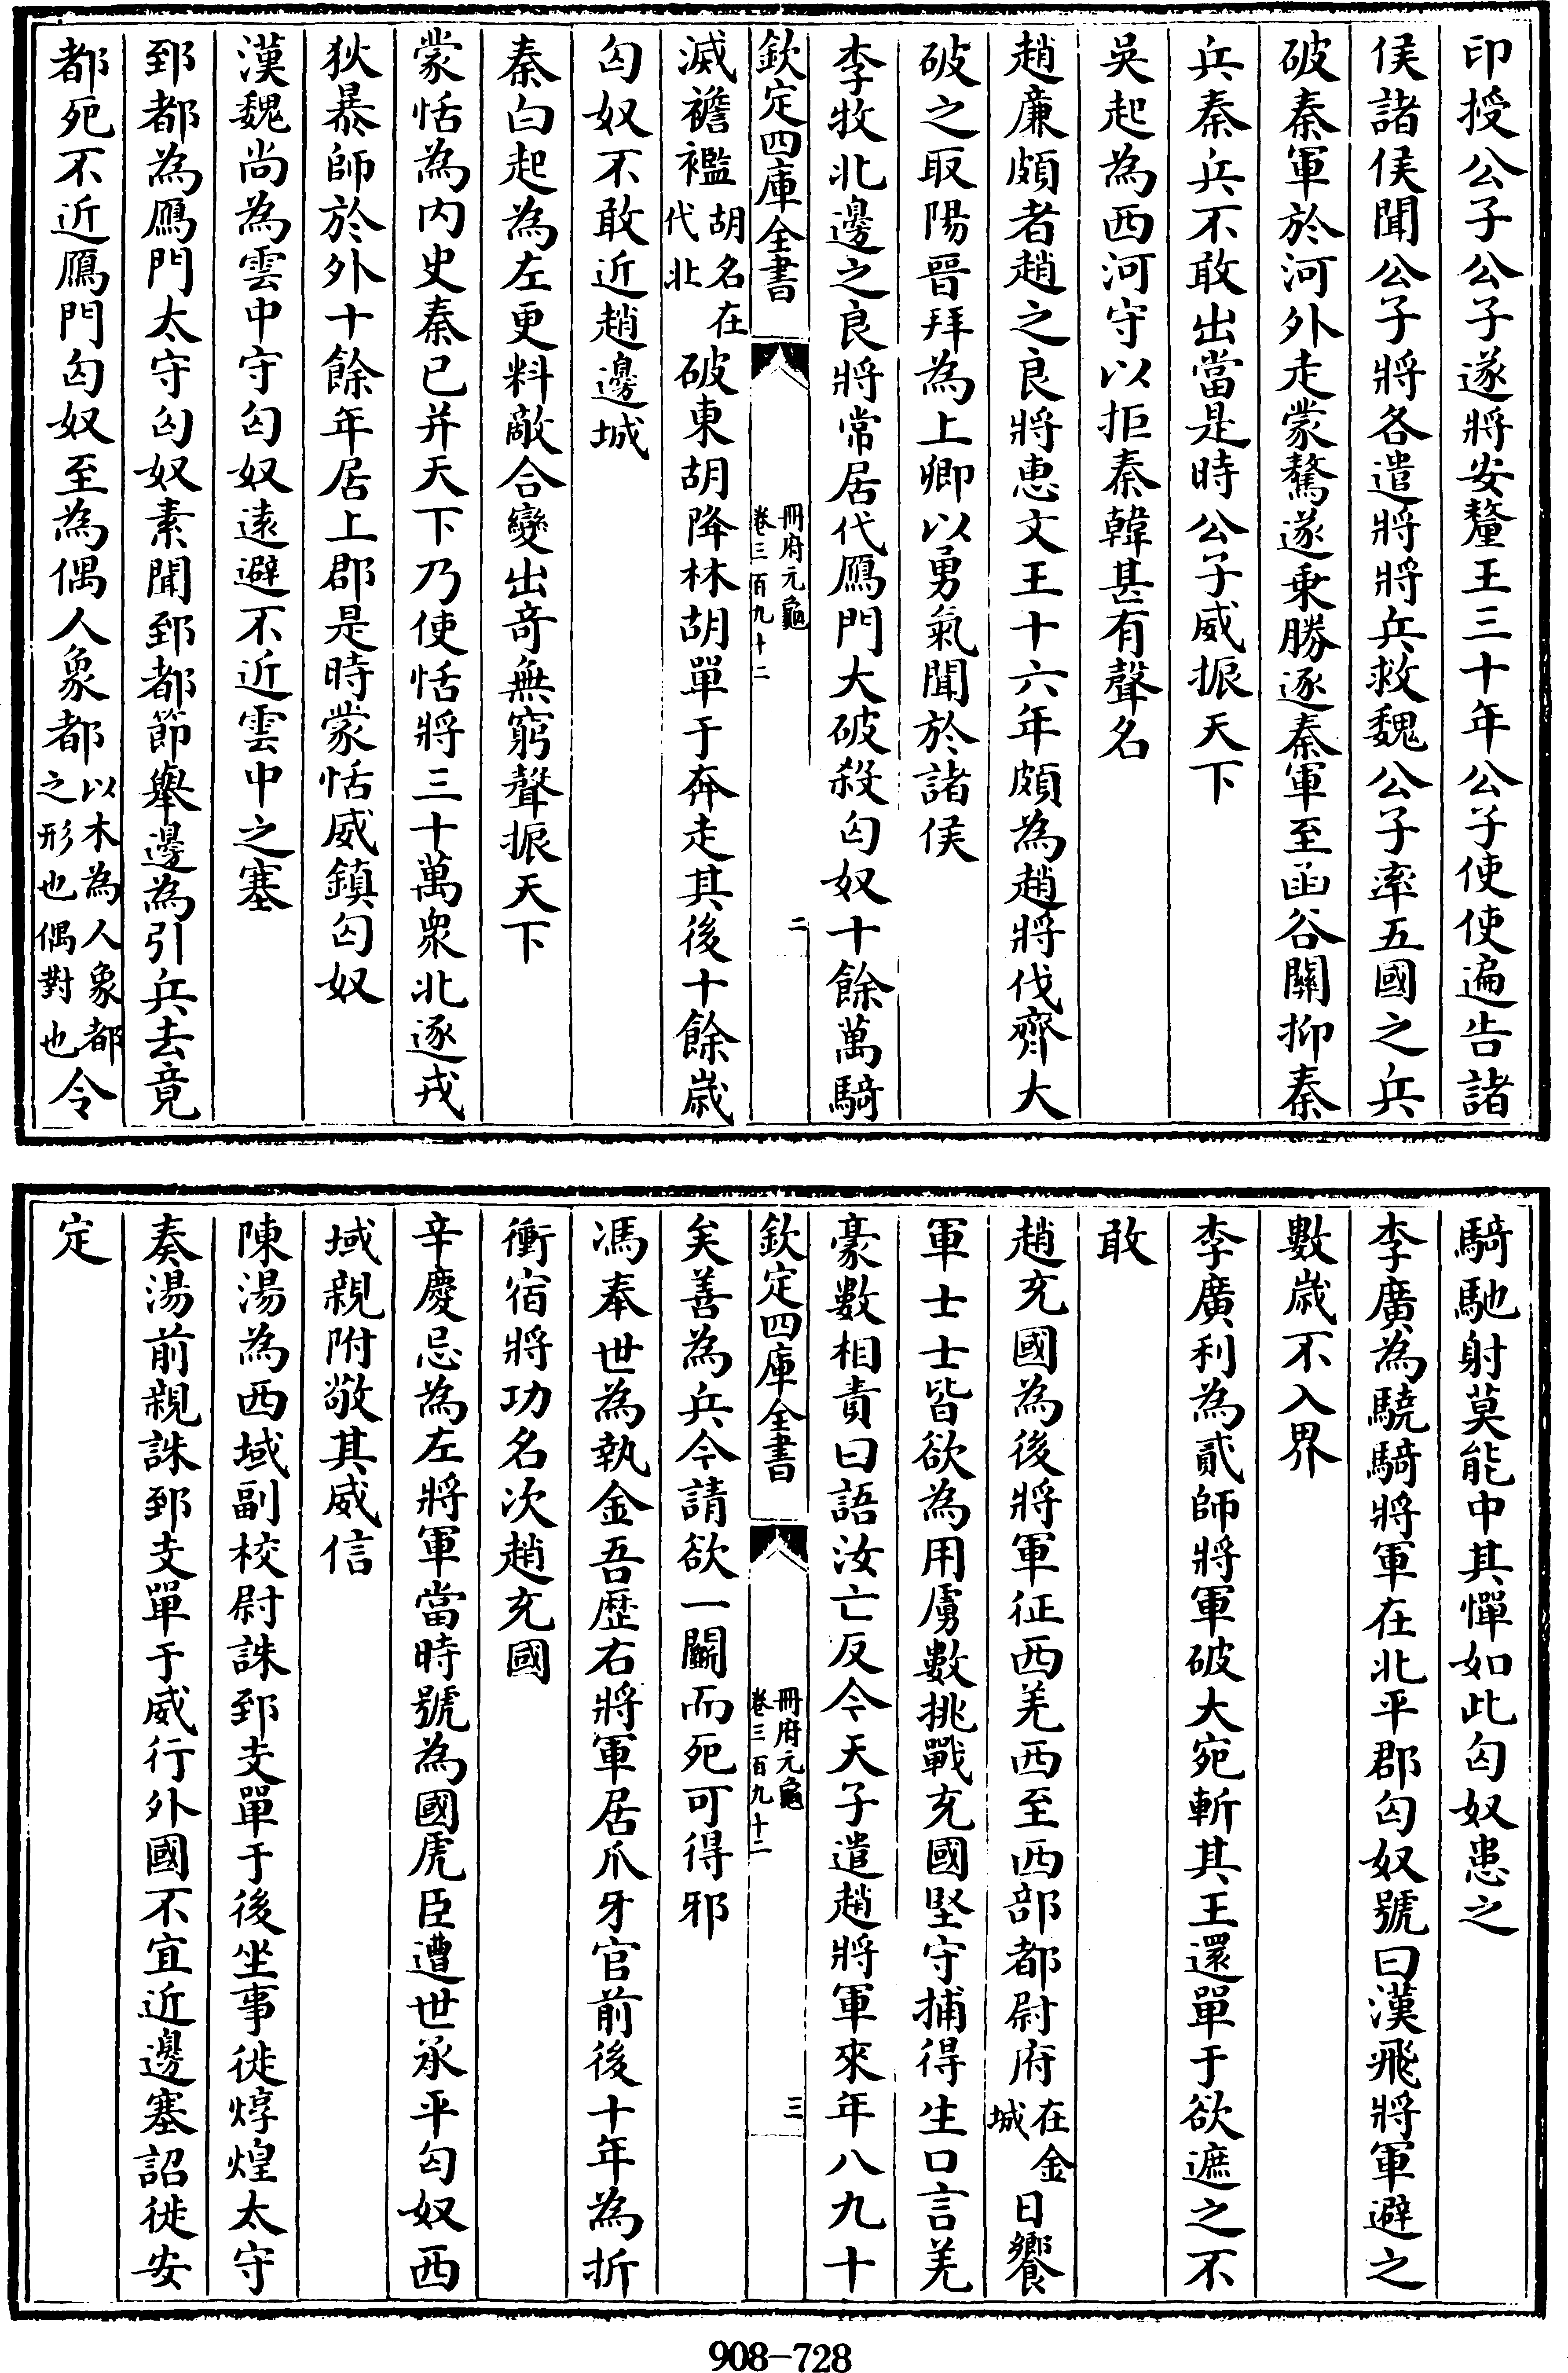 印授公子公子遂將安釐王三十年公子使使遍告諸
侯諸侯聞公子將各遣將將兵救魏公子率五國之兵
破秦軍於河外走蒙驁遂乗勝逐秦軍至函谷關抑秦
兵秦兵不敢出當是時公子威振天下
吳起為西河守以拒秦韓甚有聲名
趙廉頗者趙之良將恵文王十六年頗為趙將伐齊大
破之取陽晉拜為上卿以勇氣聞於諸侯
李牧北邊之良將常居代鴈門大破殺匈奴十餘萬騎
欽定四庫全書
冊府元龜
卷三百九十二
二
滅襜襤胡名在代北破東胡降林胡單于奔走其後十餘歲
匈奴不敢近趙邊城
秦白起為左更料敵合變出竒無窮聲振天下
蒙恬為内史秦已并天下乃使恬將三十萬衆北逐戎
狄暴師於外十餘年居上郡是時蒙恬威鎮匈奴
漢魏尚為雲中守匈奴逺避不近雲中之塞
郅都為鴈門太守匈奴素聞郅都節舉邊為引兵去竟
都死不近鴈門匈奴至為偶人象都以木為人象都之形也偶對也令
騎馳射莫能中其憚如此匈奴患之
李廣為驍騎將軍在北平郡匈奴號曰漢飛將軍避之
數歲不入界
李廣利為貳師將軍破大宛斬其王還單于欲遮之不
敢
趙充國為後將軍征西羌西至西部都尉府在金城日饗
軍士士皆欲為用虜數挑戰充國堅守捕得生口言羌
豪數相責曰語汝亡反今天子遣趙將軍來年八九十
欽定四庫全書
冊府元龜
卷三百九十二
三
矣善為兵今請欲一鬭而死可得邪
馮奉世為執金吾歴右將軍居爪牙官前後十年為折
衝宿將功名次趙充國
辛慶忌為左將軍當時號為國虎臣遭世承平匈奴西
域親附敬其威信
陳湯為西域副校尉誅郅支單于後坐事徙燉煌太守
奏湯前親誅郅支單于威行外國不宜近邊塞詔徙安
定
908-728